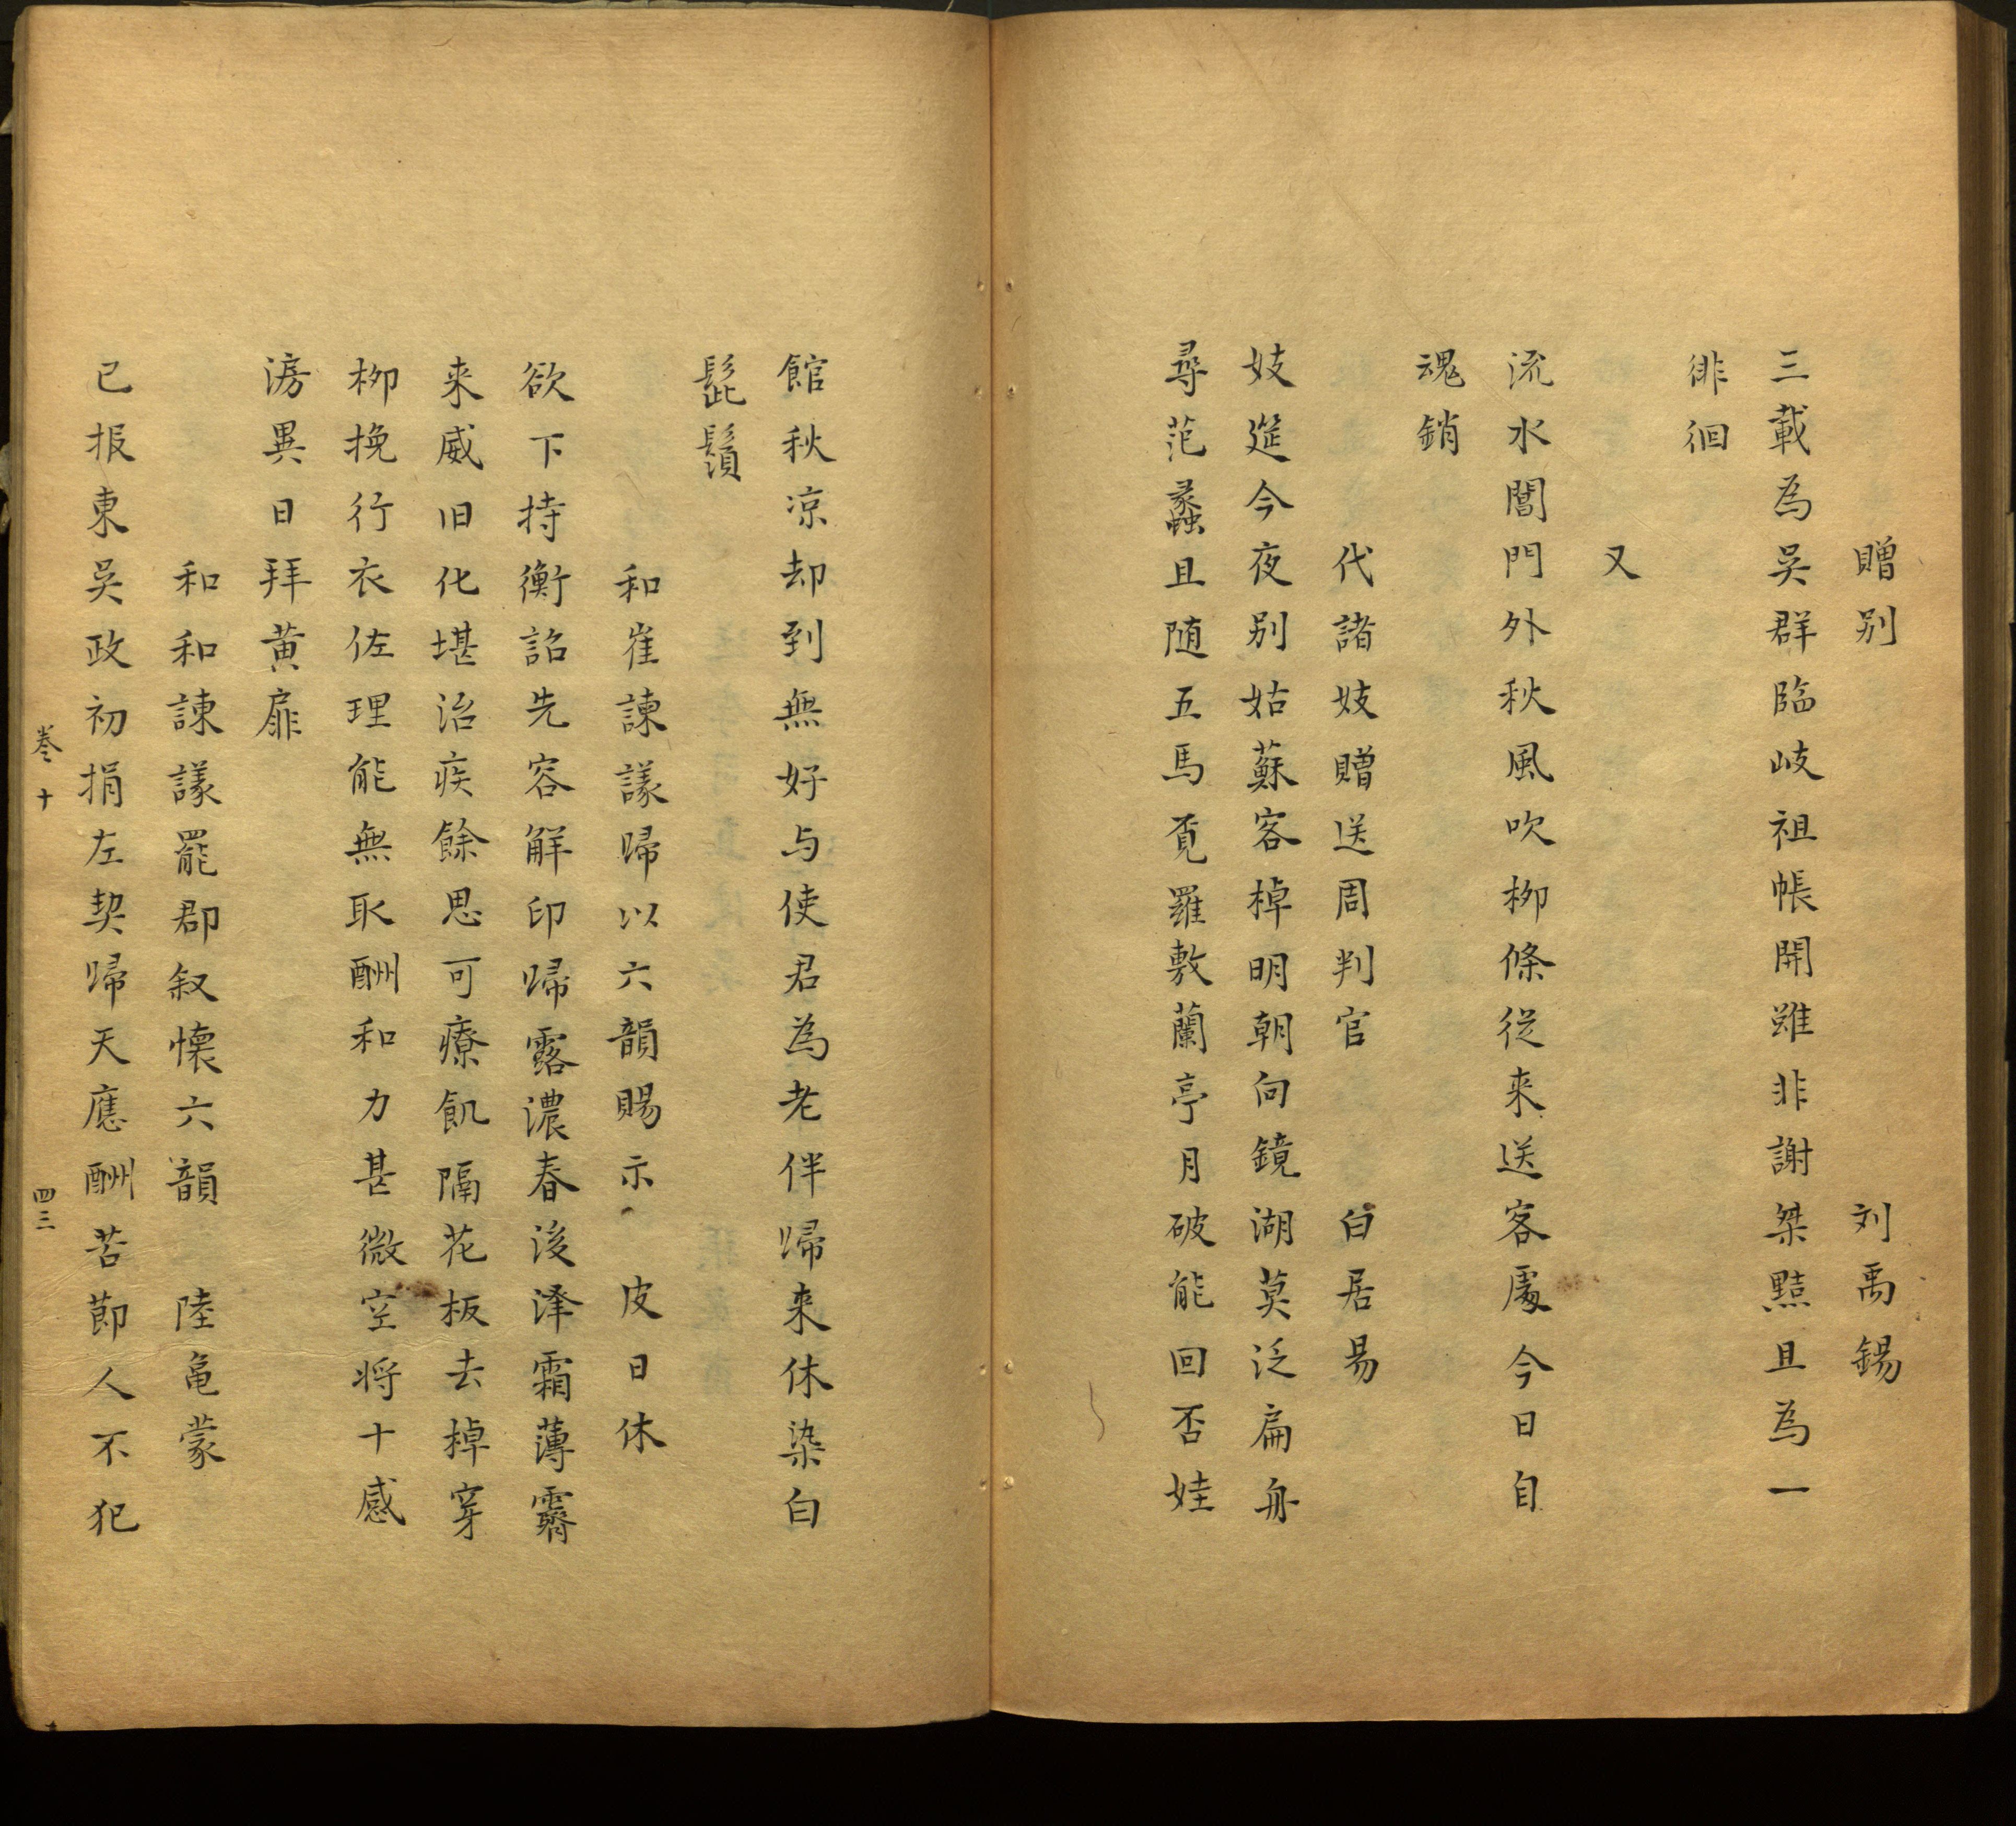 贈别　刘禹錫
三載為吴群臨岐祖帳開雖非謝桀黠且為一
徘徊
又
流水閶門外秋風吹柳條従来送客處今日自
魂銷
代諸妓贈送周判官　白居易
妓筵今夜别姑蘇客棹明朝向鏡湖莫泛扁舟
尋范蠡且随五馬覔羅敷蘭亭月破能回否娃
館秋凉却到無好与使君為老伴歸来休染白
髭鬚
和崔諫議歸以六韻賜示　皮日休
欲下持衡詔先容解印歸露濃春後澤霜薄霽
来威旧化堪治疾餘思可療飢隔花板去棹穿
柳挽行衣佐理能無取酬和力甚微空将十感
滂異日拜黄扉
和和諫議罷郡叙懐六韻　陸亀蒙
已报東吴政初捐左契歸天應酬苦節人不犯
卷十　四三